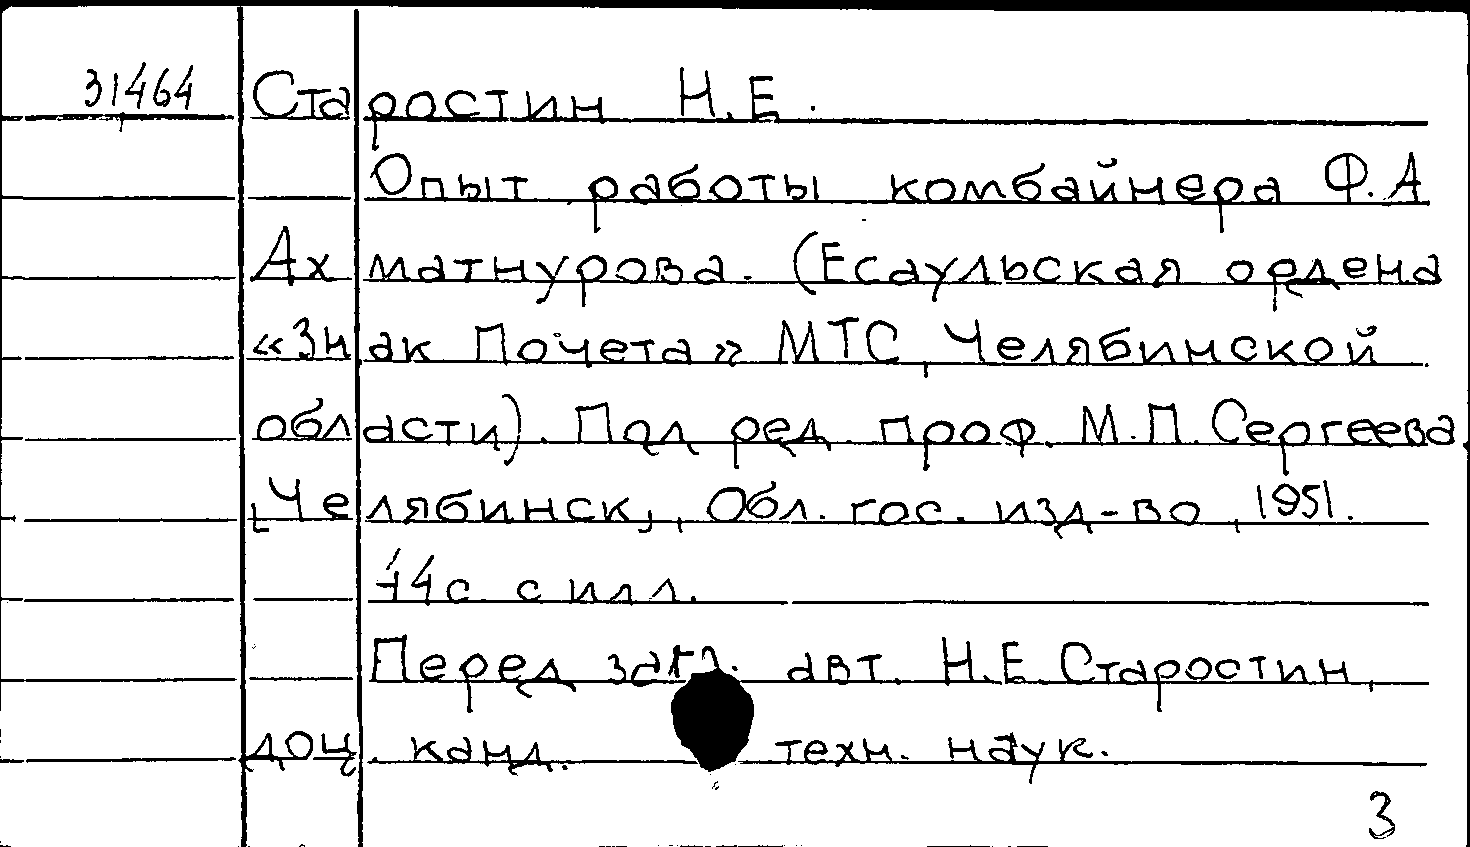 31464 Старостин Н.Е.
Опыт работы комбайнера Ф.А
Ахматнурова. (Есаульская ордена
«Знак Почета» МТС, Челябинской
области). Под ред. проф. М.П. Сергеева.
Челябинск, Обл. гос. изд-во, 1951.
44с с илл.
Перед загл. авт. Н.Е. Старостин,
доц. канд. техн. наук.
3